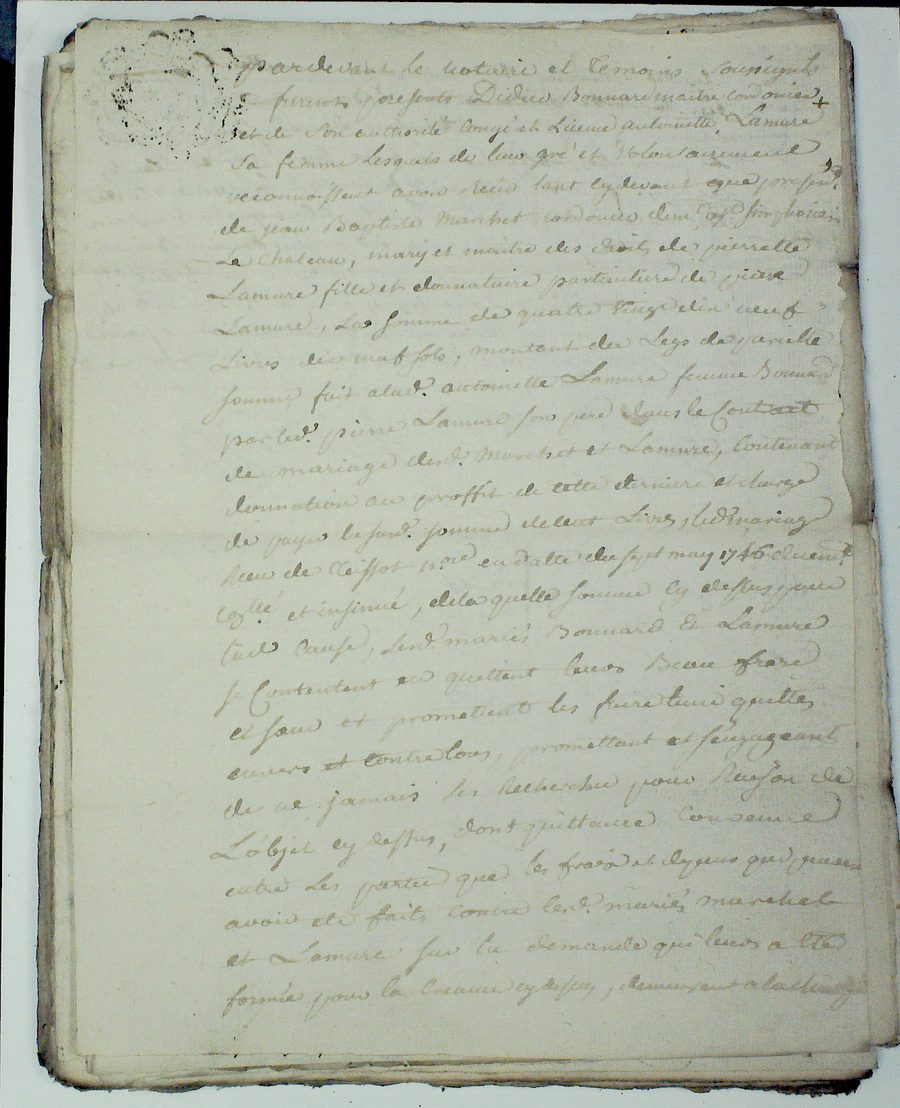 pardevant le notaire et temoins soussignés
furent presents Didier Bonnard maitre cordonier +
et de son authorité congé et licence antoinette Lamure
sa femme Lesquels de leur gré et volontairement
reconnoissent avoir Recu tant cydevant que present
de jean Baptiste Marchet cordonier dem.t a St Simphorien
Le Chateau, mary et maitre des droits de pierrette
Lamure fille et donnataire particuliere de pierre
Lamure, La somme de quatre vingt dix neuf
Livres dix neuf sols, montant du Legs de pareille
somme fait a lad.e antoinette Lamure femme Bonnard
par led.t pierre Lamure son pere dans le Contract
de mariage desd.s Marchet et Lamure, Contenant
donnation au proffit de cette derniere et charge
de payer la susd.e somme de Cent Livres, led.t mariage
Recu de Teissot n.re en datte du sept may 1746 duem.t
C.llé et insinué, de la quelle somme cy dessus pour
tad Cause, lesd.s mariés Bonnard Et Lamure
se Contentent en quittent leurs Beau frere
et soeur et promettent les faire tenir quittes
envers et contre tous, promettant et s'engageant
de ne jamais les Rechercher pour Raison de
L'objet cy dessus, dont quittance Convenu
entre Les parties que les fraix et depens qui peuvent
avoir eté faits Contre lesd.s mariés marchet
et Lamure sur la demande qui leurs a eté
formée pour la Creance cy dessus, demeurent a la charge